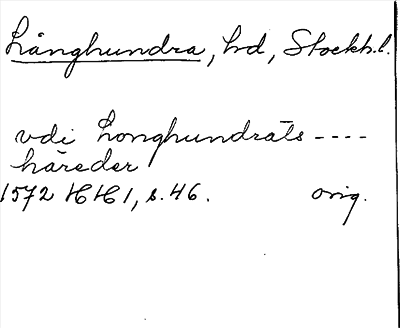 Långhundra, hd, Stockh.l.
vdi Longhundrats ----
häreder
1572 HH 1, s. 46. orig.